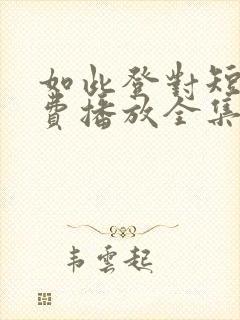 如此登對短
費播放全集
韦雲起